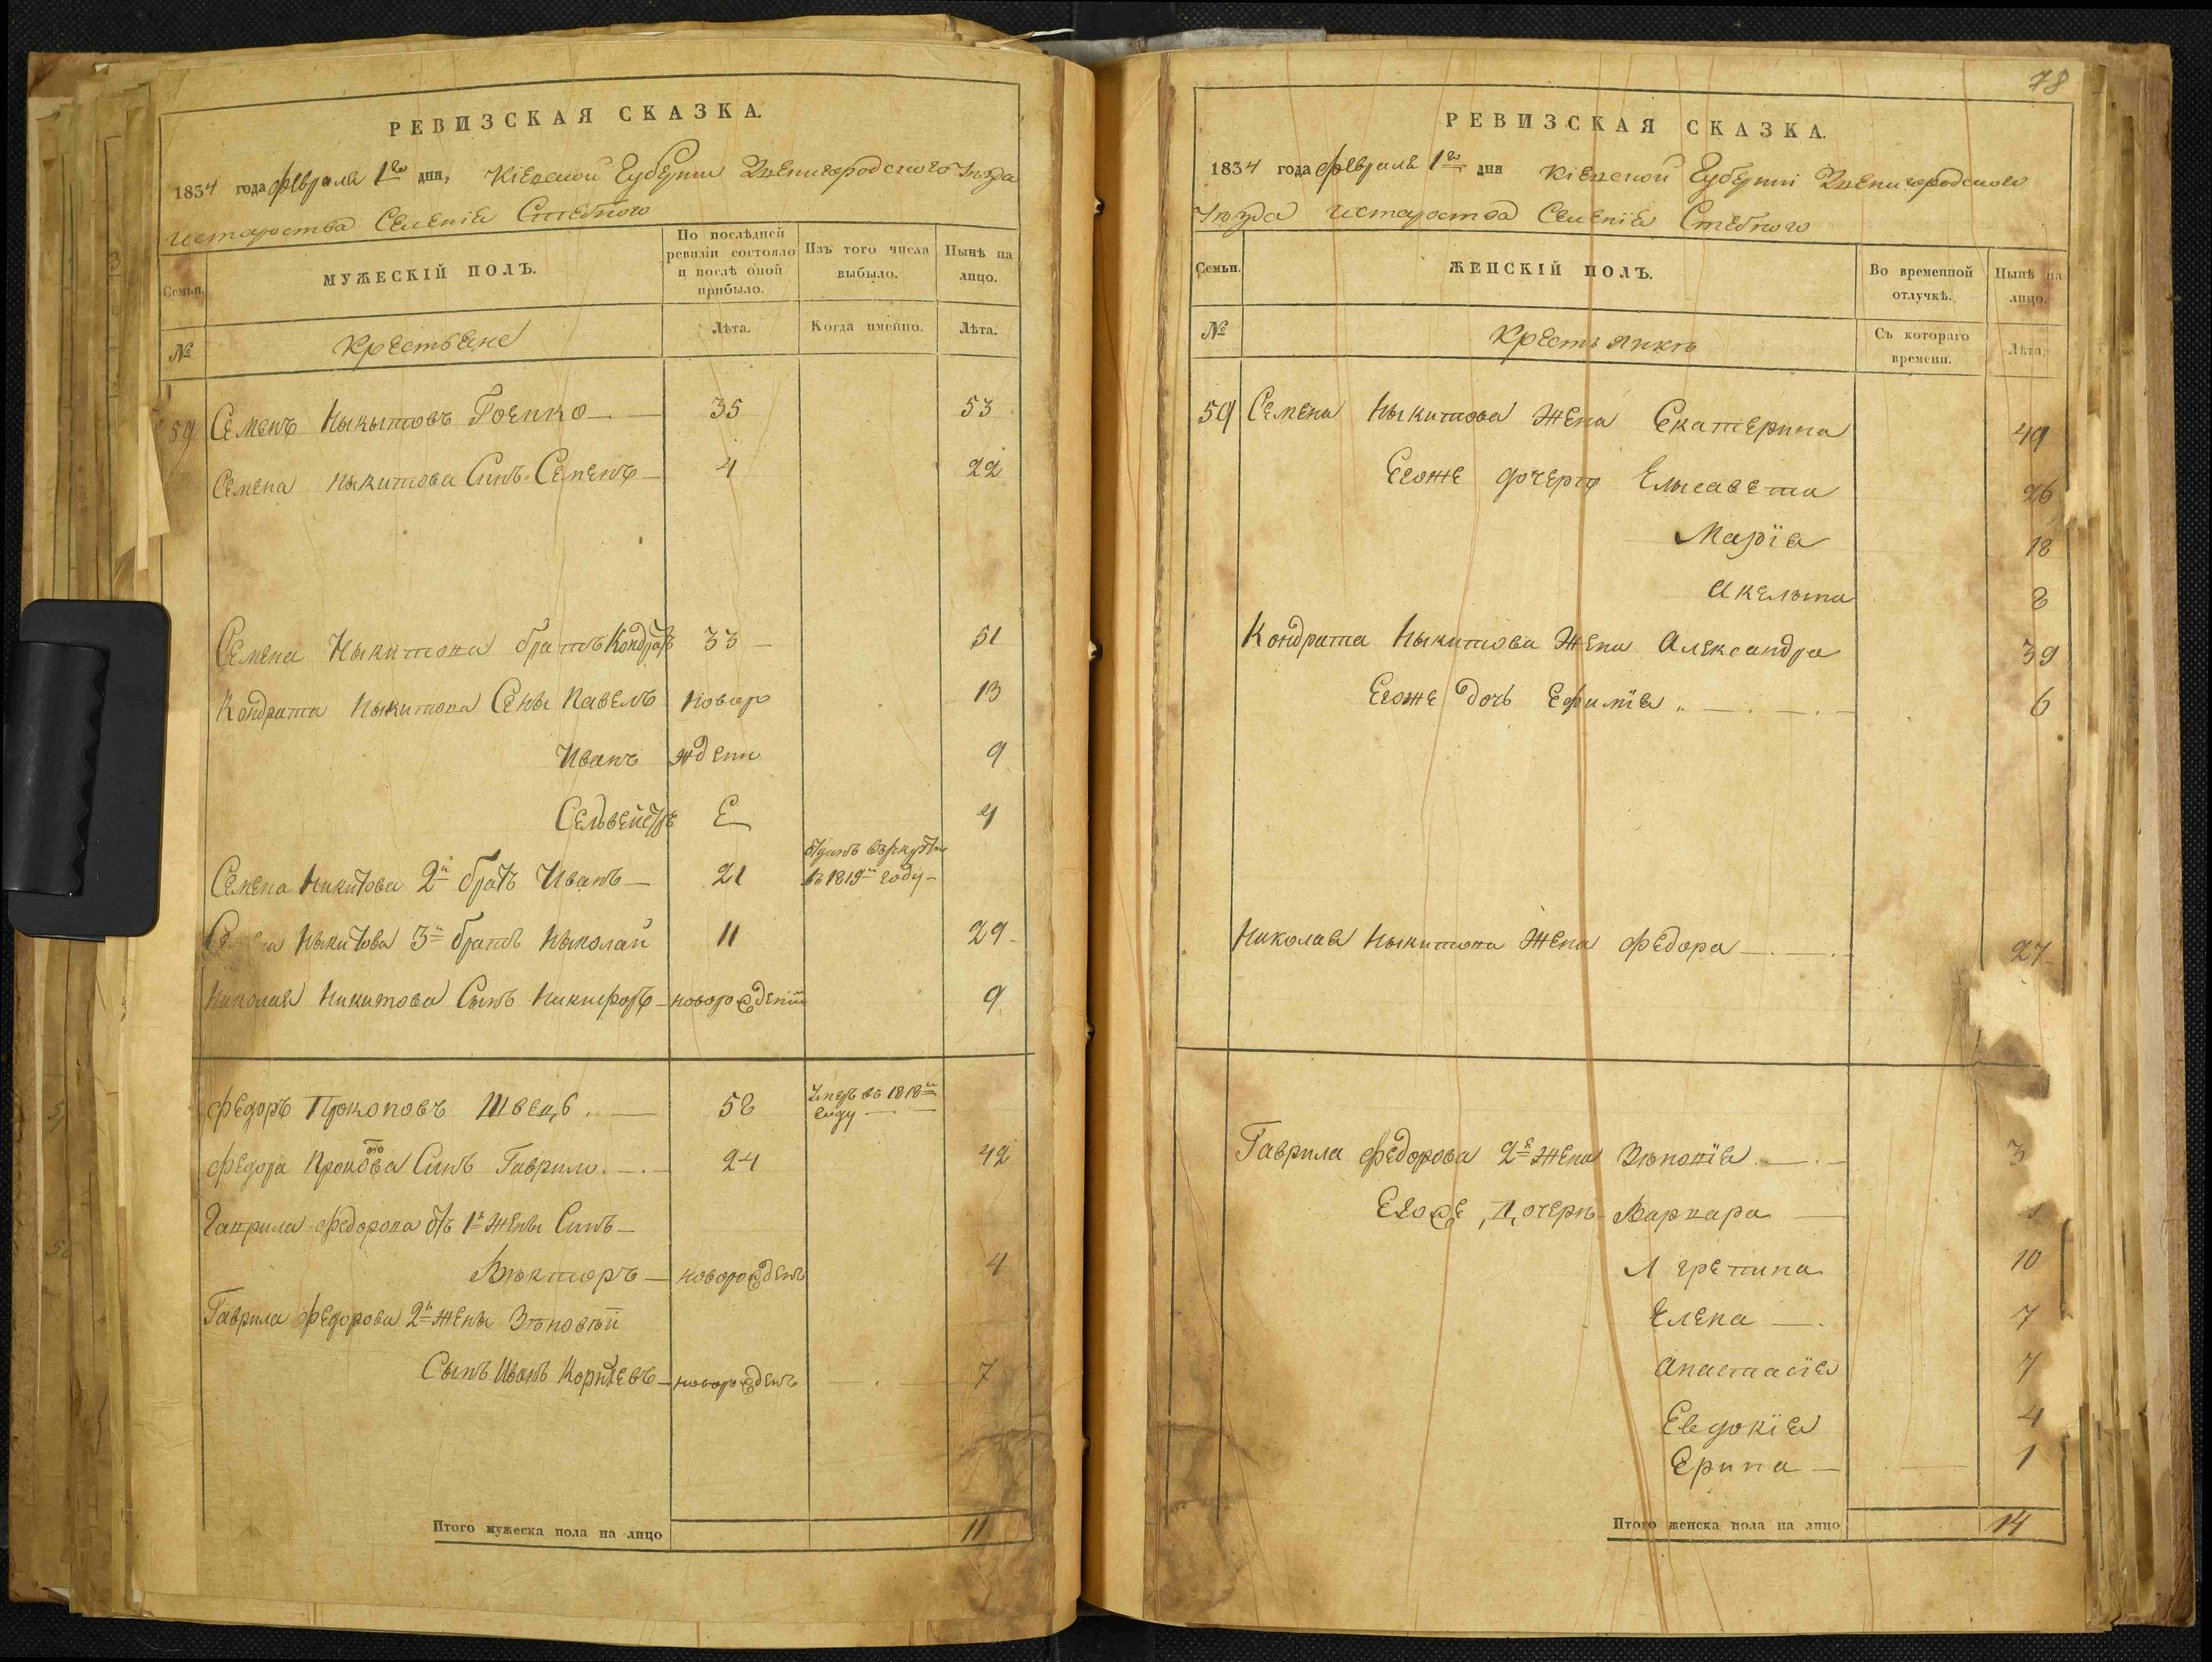 РЕВИЗСКАЯ СКАЗКА.
1834 года февраля 1го дня, Кіевской Губерніи Звенигородского Уѣзда
Истароства Селенія Стебного
Семьи.
МУЖЕСКІЙ ПОЛЪ.
По послѣдней ревизіи состояло и послѣ оной прибыло.
Изъ того числа выбыло.
Нынѣ на лицо.
№
Крестьяне
Лѣта.
Когда именно.
Лѣта.
59 Семенъ Ныкытовъ Гоенко — 35 53
Семена Ныкитова Синъ Семенъ — 4 22
Семена Ныкитова братъ Кондратъ 33 — 51
Кондрата Ныкитова Сены Павелъ новор 13
Иванъ ждени 9
Селвейстръ Е 4
отданъ врекруты
Семена Никитова 2й братъ Иванъ — 21 въ 1819м году —
Семена Ныкитова 3й братъ Ныколай 11 29
Николая Никитова Сынъ Никифоръ — новорожденій 9
Федоръ Прокоповъ Швецъ. — 58 Умеръ въ 1818м году —
Федора Прокопова Синъ Гаврило. — 24 42
Гаврила Федорова отъ 1й жены Синъ —
Вѣкторъ — новорожденъ 4
Гаврила Федорова 2й жены Зѣновѣй
Сынъ Иванъ Корнѣевъ — новорожденъ — . — 7
Итого мужеска пола на лицо 11
78
РЕВИЗСКАЯ СКАЗКА.
1834 года февраля 1го дня Кіевской Губерніи Звенигородского
Уѣзда Истароства Селенія Стебного
Семьи.
ЖЕНСКІЙ ПОЛЪ.
Во временной отлучкѣ.
Нынѣ на лицо.
№
Крестьянкѣ
Съ котораго времени.
Лѣта.
59 Семена Ныкитова Жена Екатерина 49
Егоже дочерѣ Елысавета 26
Марія 18
Акелына 8
Кондрата Ныкитова Жена Александра 39
Егоже дочь Ефимія 6
Николая Ныкитова Жена Федора — 27
Гаврила Федорова 2я Жена Зѣновія — 3
Егоже Дочерѣ Варвара —
Агрепина 10
Елена — 7
Анастасія 7
Евдокія 4
Ерина — 1
Итого женска пола на лицо 14